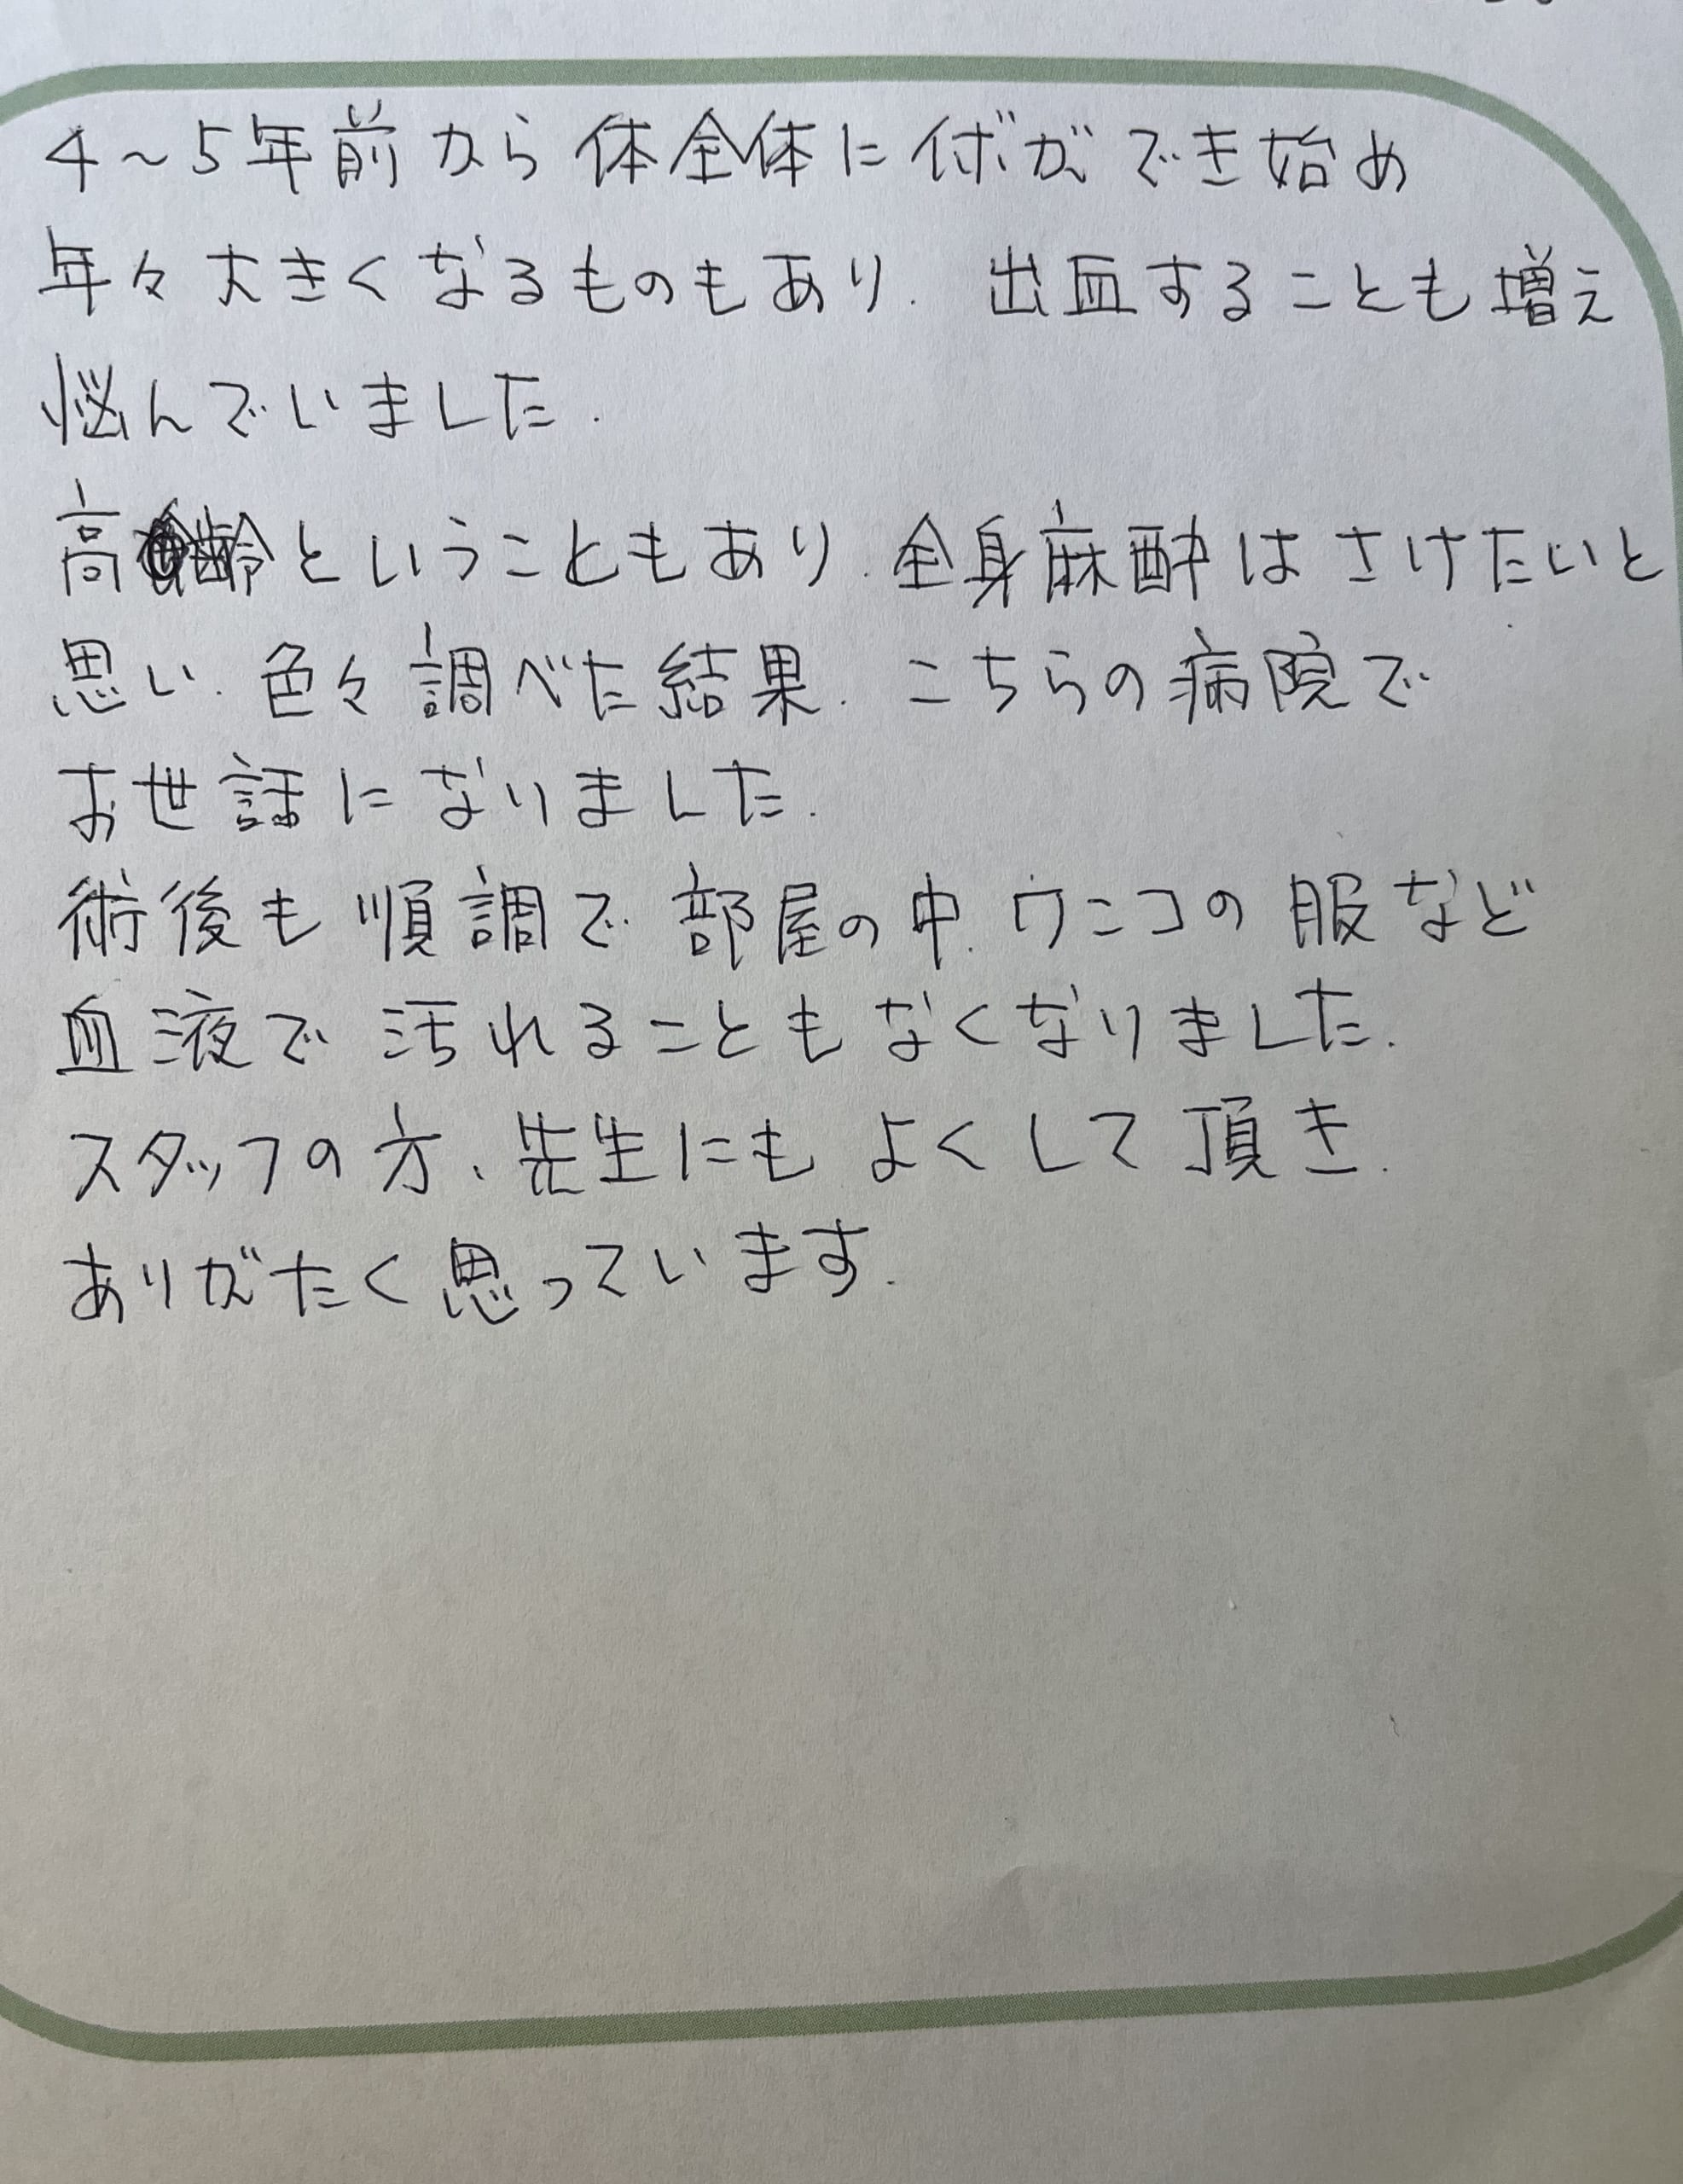 4～5年前から体全体にイボができ始め
年々大きくなるものもあり、出血することも増え
悩んでいました.
高齢ということもあり、全身麻酔はさけたいと
思い、色々調べた結果、こちらの病院で
お世話になりました.
術後も順調で部屋の中、ワンコの服など
血液で汚れることもなくなりました.
スタッフの方、先生にもよくして頂き、
ありがたく思っています.